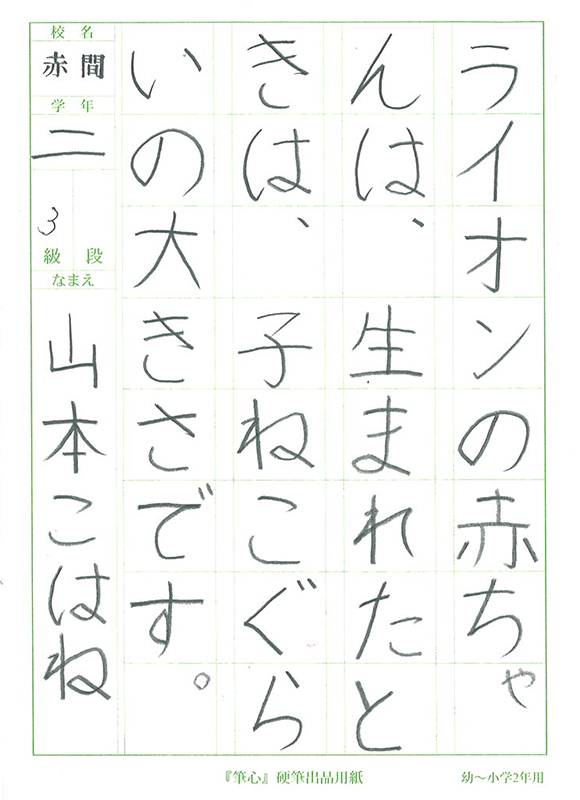 ライオンの赤ちゃ
んは、生まれたと
きは、子ねこぐら
いの大きさです。
校名
赤間
学年
二
3
級 段
なまえ
山本こはね
『筆心』硬筆出品用紙
幼～小学2年用